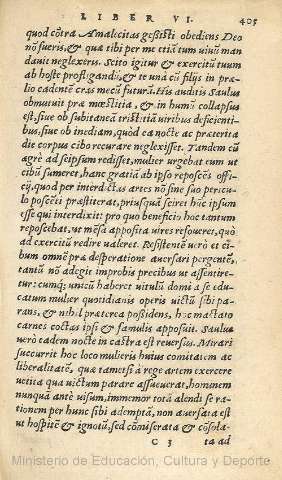 LIBER VI. 405
quod cōtra Amalecitas gessisti obediens Deo
nō fueris, & quæ tibi per me etiā tum uiuū man
dauit neglexeris. Scito igitur & exercitū tuum
ab hoste profligandū, & te unà cū filijs in præ-
lio cadentē cras mecū futurū. His auditis Saulus
obmutuit præ mœstitia, & in humū collapsus
est, siue ob subitaneā tristitiā uiribus deficienti-
bus, siue ob inediam, quòd ea nocte ac præterita
die corpus cibo recurare neglexisset. Tandem cū
ægrè ad seipsum redisset, mulier urgebat eum ut
cibū sumeret, hanc gratiā ab ipso reposcēs offi-
cij, quod per interdictas artes nō sine suo pericu-
lo poscēti præstiterat, priusquā sciret hūc ipsum
esse qui interdixit: pro quo beneficio hoc tantum
reposcebat, ut mēsa apposita uires resoueret, quò
ad exercitū redire ualeret. Resistentē uerò et ci-
bum omnē præ desperatione auersari pergentē,
tantū nō adegit improbis precibus ut assentire-
tur: cumq; unicū haberet uitulū domi a se edu-
catum mulier quotidianis operis uictū sibi pa-
rans, & nihil præterea possidens, hoc mactato
carnes coctas ipsi & famulis apposuit. Saulus
uerò eadem nocte in castra est reuersus. Mirari
succurrit hoc loco mulieris huius comitatem ac
liberalitatē, quæ tametsi à rege artem exercere
uetita qua uictum parare assueuerat, hominem
nunquā antè uisum, immemor totā alendi se ra-
tionem per hunc sibi ademptā, non auersata est
ut hospitē & ignotū, sed cōmiserata & cōsola-
C 3 ta ad
Ministerio de Educación, Cultura y Deporte